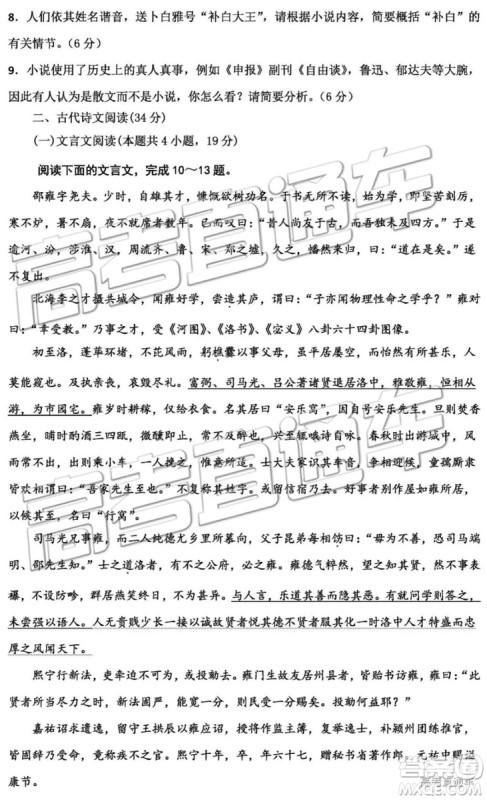 8．人们依其姓名谐音，送卜白雅号“补白大王”，请根据小说内容，简要概括“补白”的
有关情节。（6 分）
9．小说使用了历史上的真人真事，例如《申报》副刊《自由谈》、鲁迅、郁达夫等大腕，
因此有人认为是散文而不是小说，你怎么看？请简要分析。（6 分）
二、古代诗文阅读(34 分)
(一)文言文阅读(本题共 4 小题，19 分)
阅读下面的文言文，完成 10～13 题。
邵雍字尧夫。少时，自雄其才，慷慨欲树功名。于书无所不读，始为学，即坚苦刻厉，
寒不炉，暑不扇，夜不就席者数年。已而叹曰：“昔人尚友于古，而吾独未及四方。”于是
逾河、汾，涉淮、汉，周流齐、鲁、宋、郑之墟，久之，幡然来归，曰：“道在是矣。”遂
不复出。
北海李之才摄共城令，闻雍好学，尝造其庐，谓曰：“子亦闻物理性命之学乎？”雍对
曰：“幸受教。”乃事之才，受《河图》、《洛书》、《宓义》八卦六十四卦图像。
初至洛，蓬荜环堵，不芘风雨，躬樵爨以事父母，虽平居屡空，而怡然有所甚乐，人
莫能窥也。及执亲丧，哀毁尽礼。富弼、司马光、吕公著诸贤退居洛中，雅敬雍，恒相从
游，为市园宅。雍岁时耕稼，仅给衣食。名其居曰“安乐窝”，因自号安乐先生。旦则焚香
燕坐，晡时酌酒三四瓯，微醺即止，常不及醉也，兴至辄哦诗自咏。春秋时出游城中，风
雨常不出，出则乘小车，一人挽之，惟意所适。士大夫家识其车音，争相迎候，童孺厮隶
皆欢相谓曰：“吾家先生至也。”不复称其姓字。或留信宿乃去。好事者别作屋如雍所居，
以候其至，名曰“行窝”。
司马光兄事雍，而二人纯德尤乡里所慕向，父子昆弟每相饬曰：“毋为不善，恐司马端
明、邵先生知。”士之道洛者，有不之公府，必之雍。雍德气粹然，望之知其贤，然不事表
襮，不设防畛，群居燕笑终日，不为甚异。与人言，乐道其善而隐其恶。有就问学则答之，
未尝强以语人。人无贵贱少长一接以诚故贤者悦其德不贤者服其化一时洛中人才特盛而忠
厚之风闻天下。
熙宁行新法，吏牵迫不可为，或投劾去。雍门生故友居州县者，皆贻书访雍，雍曰：“此
贤者所当尽力之时，新法固严，能宽一分，则民受一分赐矣。投劾何益耶？”
嘉祐诏求遗逸，留守王拱辰以雍应诏，授将作监主簿，复举逸士，补颍州团练推官，
皆固辞乃受命，竟称疾不之官。熙宁十年，卒，年六十七，赠秘书省著作郎。元祐中赐谥
康节。
高考直通车
答案圈